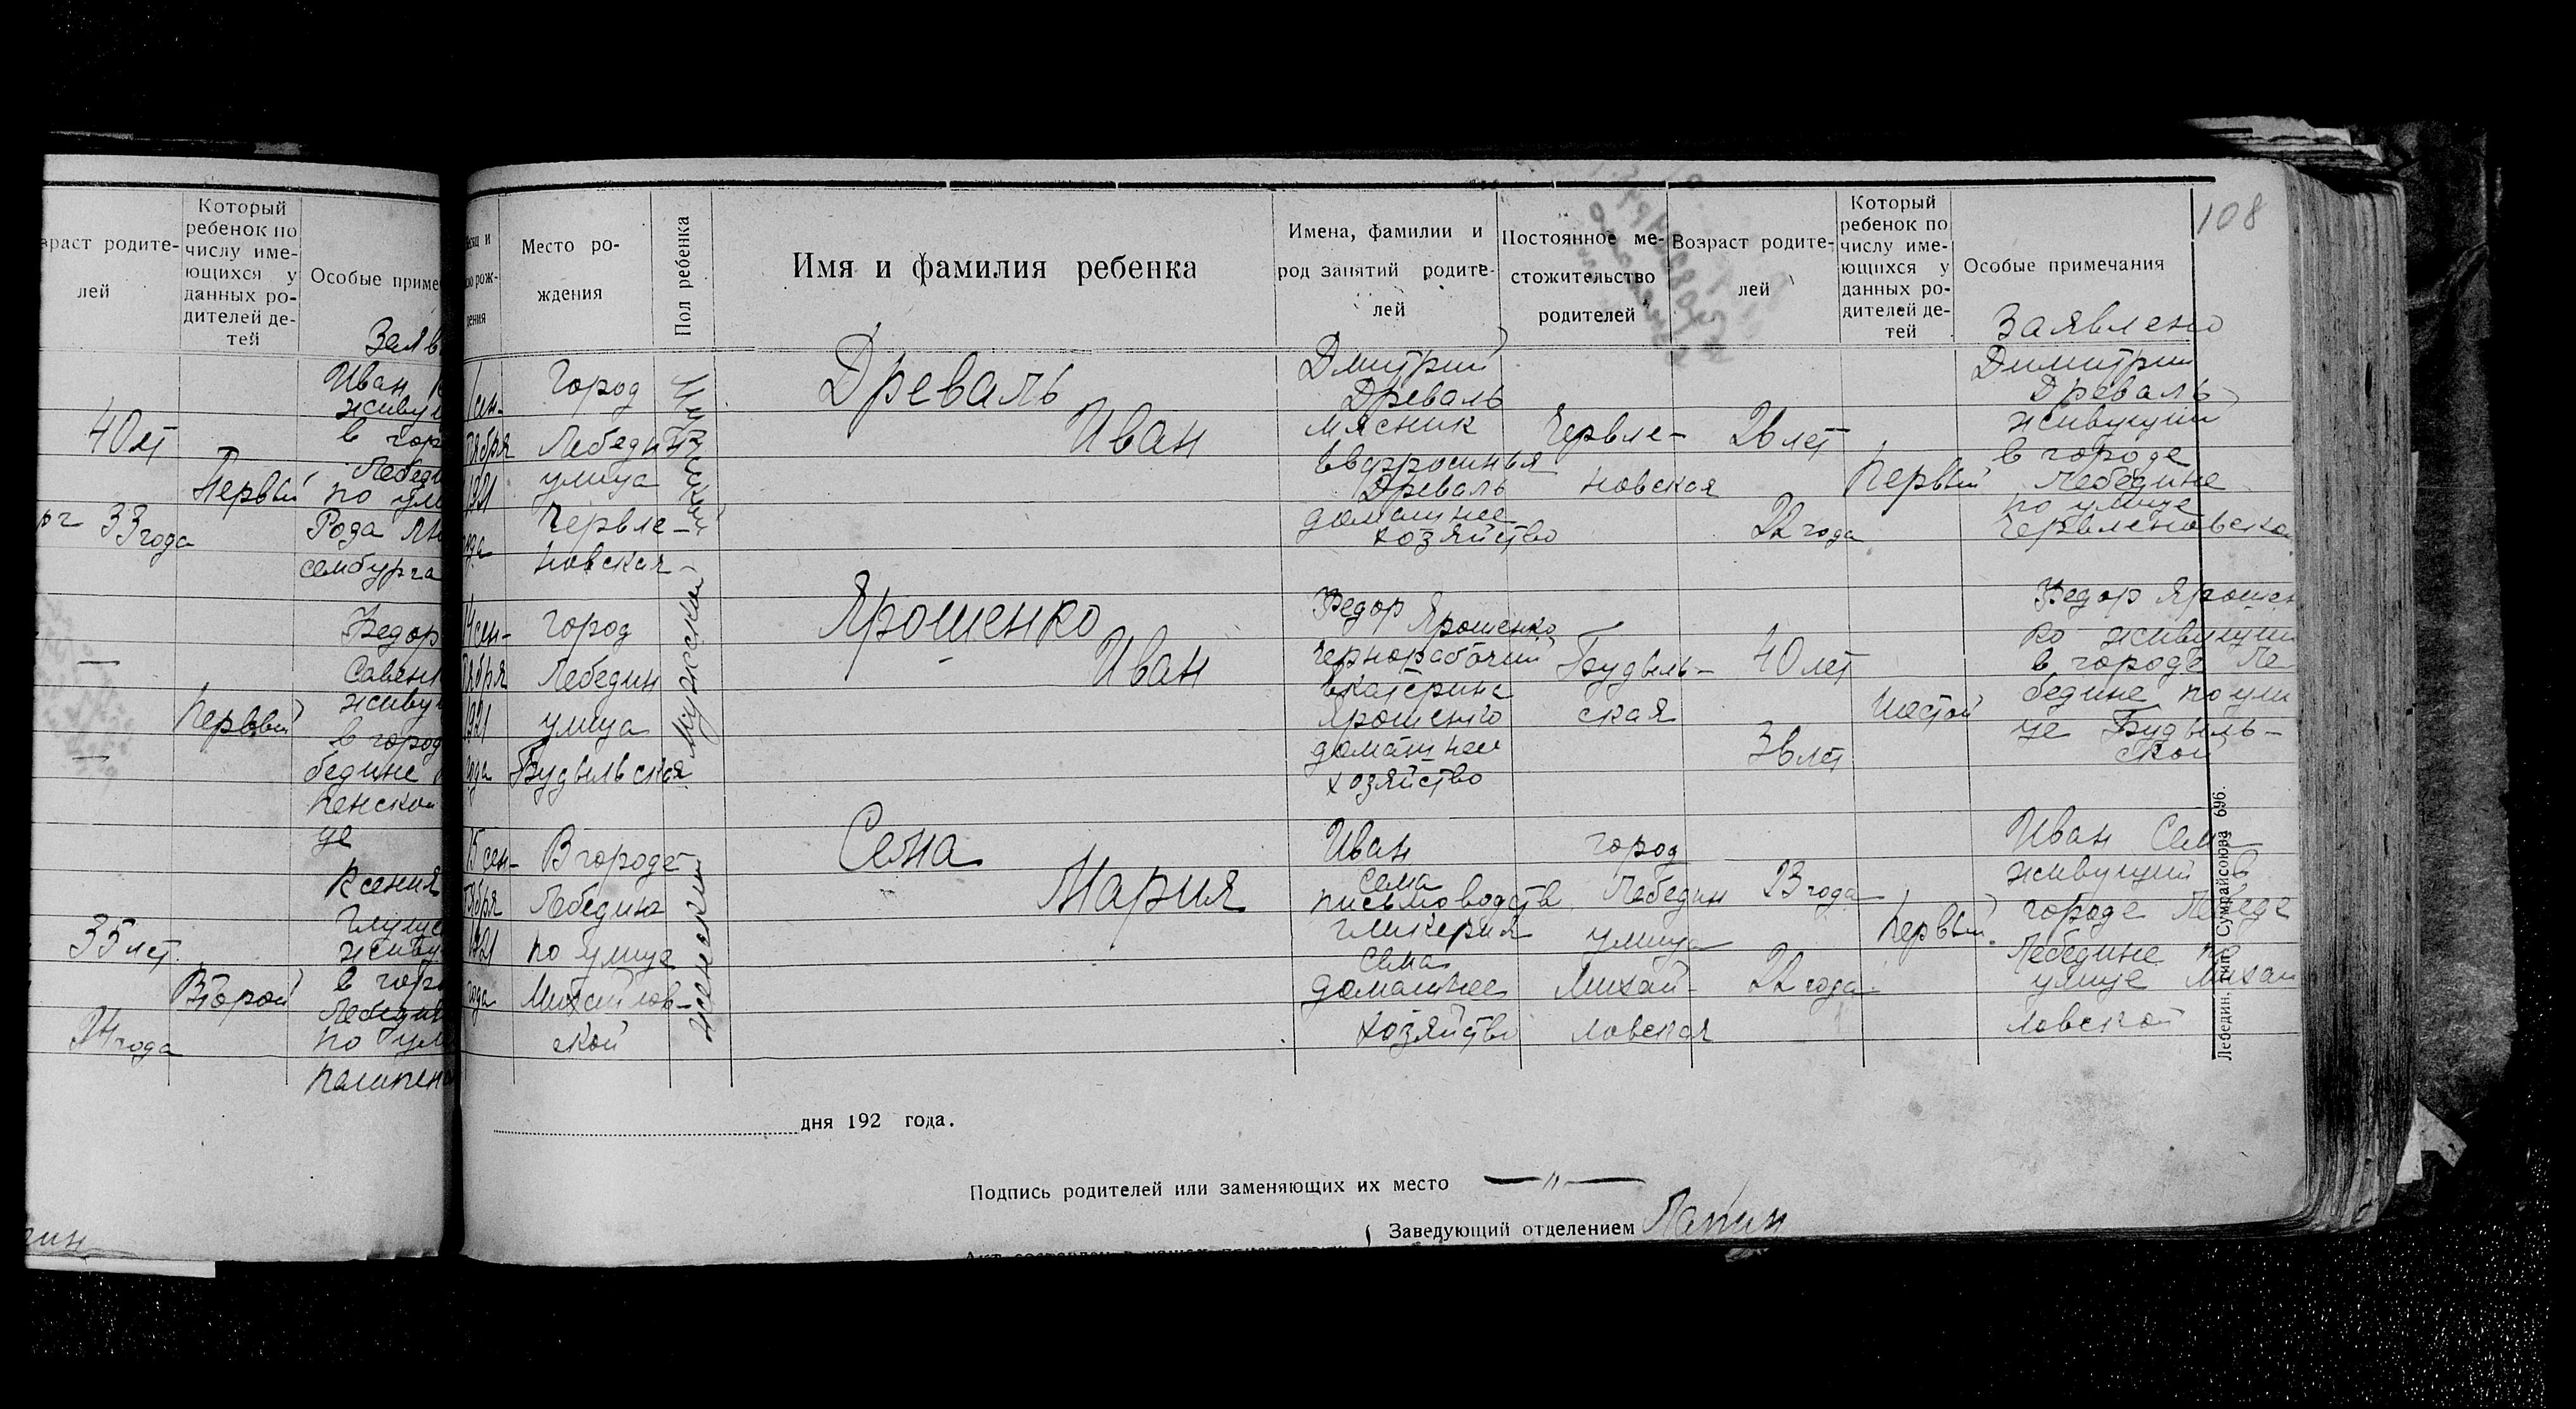 108
Который
ребенок по
числу име-
ющихся у
данных ро-
дителей де-
тей
лей
40 лет
Первый
33 года
Рода
сембурга
Иван
в гор
по ули
Федор
Первый
в город
бедине
пенской
це
Ксения
35 лет
Второй
в гор
24 года
по ули
Место ро-
ждения
Пол ребенка
Имя и фамилия ребенка
Имена, фамилии и
род занятий родите-
лей
Постоянное ме-
стожительство
родителей
Возраст родите-
лей
Который
ребенок по
числу име-
ющихся у
данных ро-
дителей де-
тей
Особые примечания
Заявлено
1 сен-
тября
1921
года
Город
Лебедин
улица
Червле-
новская
Мужской
Древаль
Иван
Дмитрий
Древаль
мясник
Евдросинья
Древаль
домашнее
хозяйство
Червле-
новская
26 лет
22 года
Первый
Димитрий
Древаль
живущий
в городе
Лебедине
по улице
Червленовской
14 сен-
тября
1921
года
город
Лебедин
улица
Будыльская
Мужской
Ярошенко
Иван
Федор
Ярошенко
чернорабочий
Екатерина
Ярошенко
домашнее
хозяйство
Будыль-
ская
40 лет
36 лет
Шестой
Федор Ярошен
ко живущий
в городе Ле
бедине по ули
це Будыль-
ской
15 сен-
тября
1921
года
В городе
Лебедине
по улице
Михайлов-
ской
Женский
Сема
Мария
Иван
Сема
письмоводств
Гликерия
Сема
домашнее
хозяйство
город
Лебедин
улица
Михай-
ловская
23 года
22 года
Первый
Иван Сема
живущий в
городе Лебеде
Лебедине по
улице Михай
ловской
Лебедин. тип. Сумрайсоюза 696.
дня 192 года.
Подпись родителей или заменяющих их место — „ —
Заведующий отделением Лапин